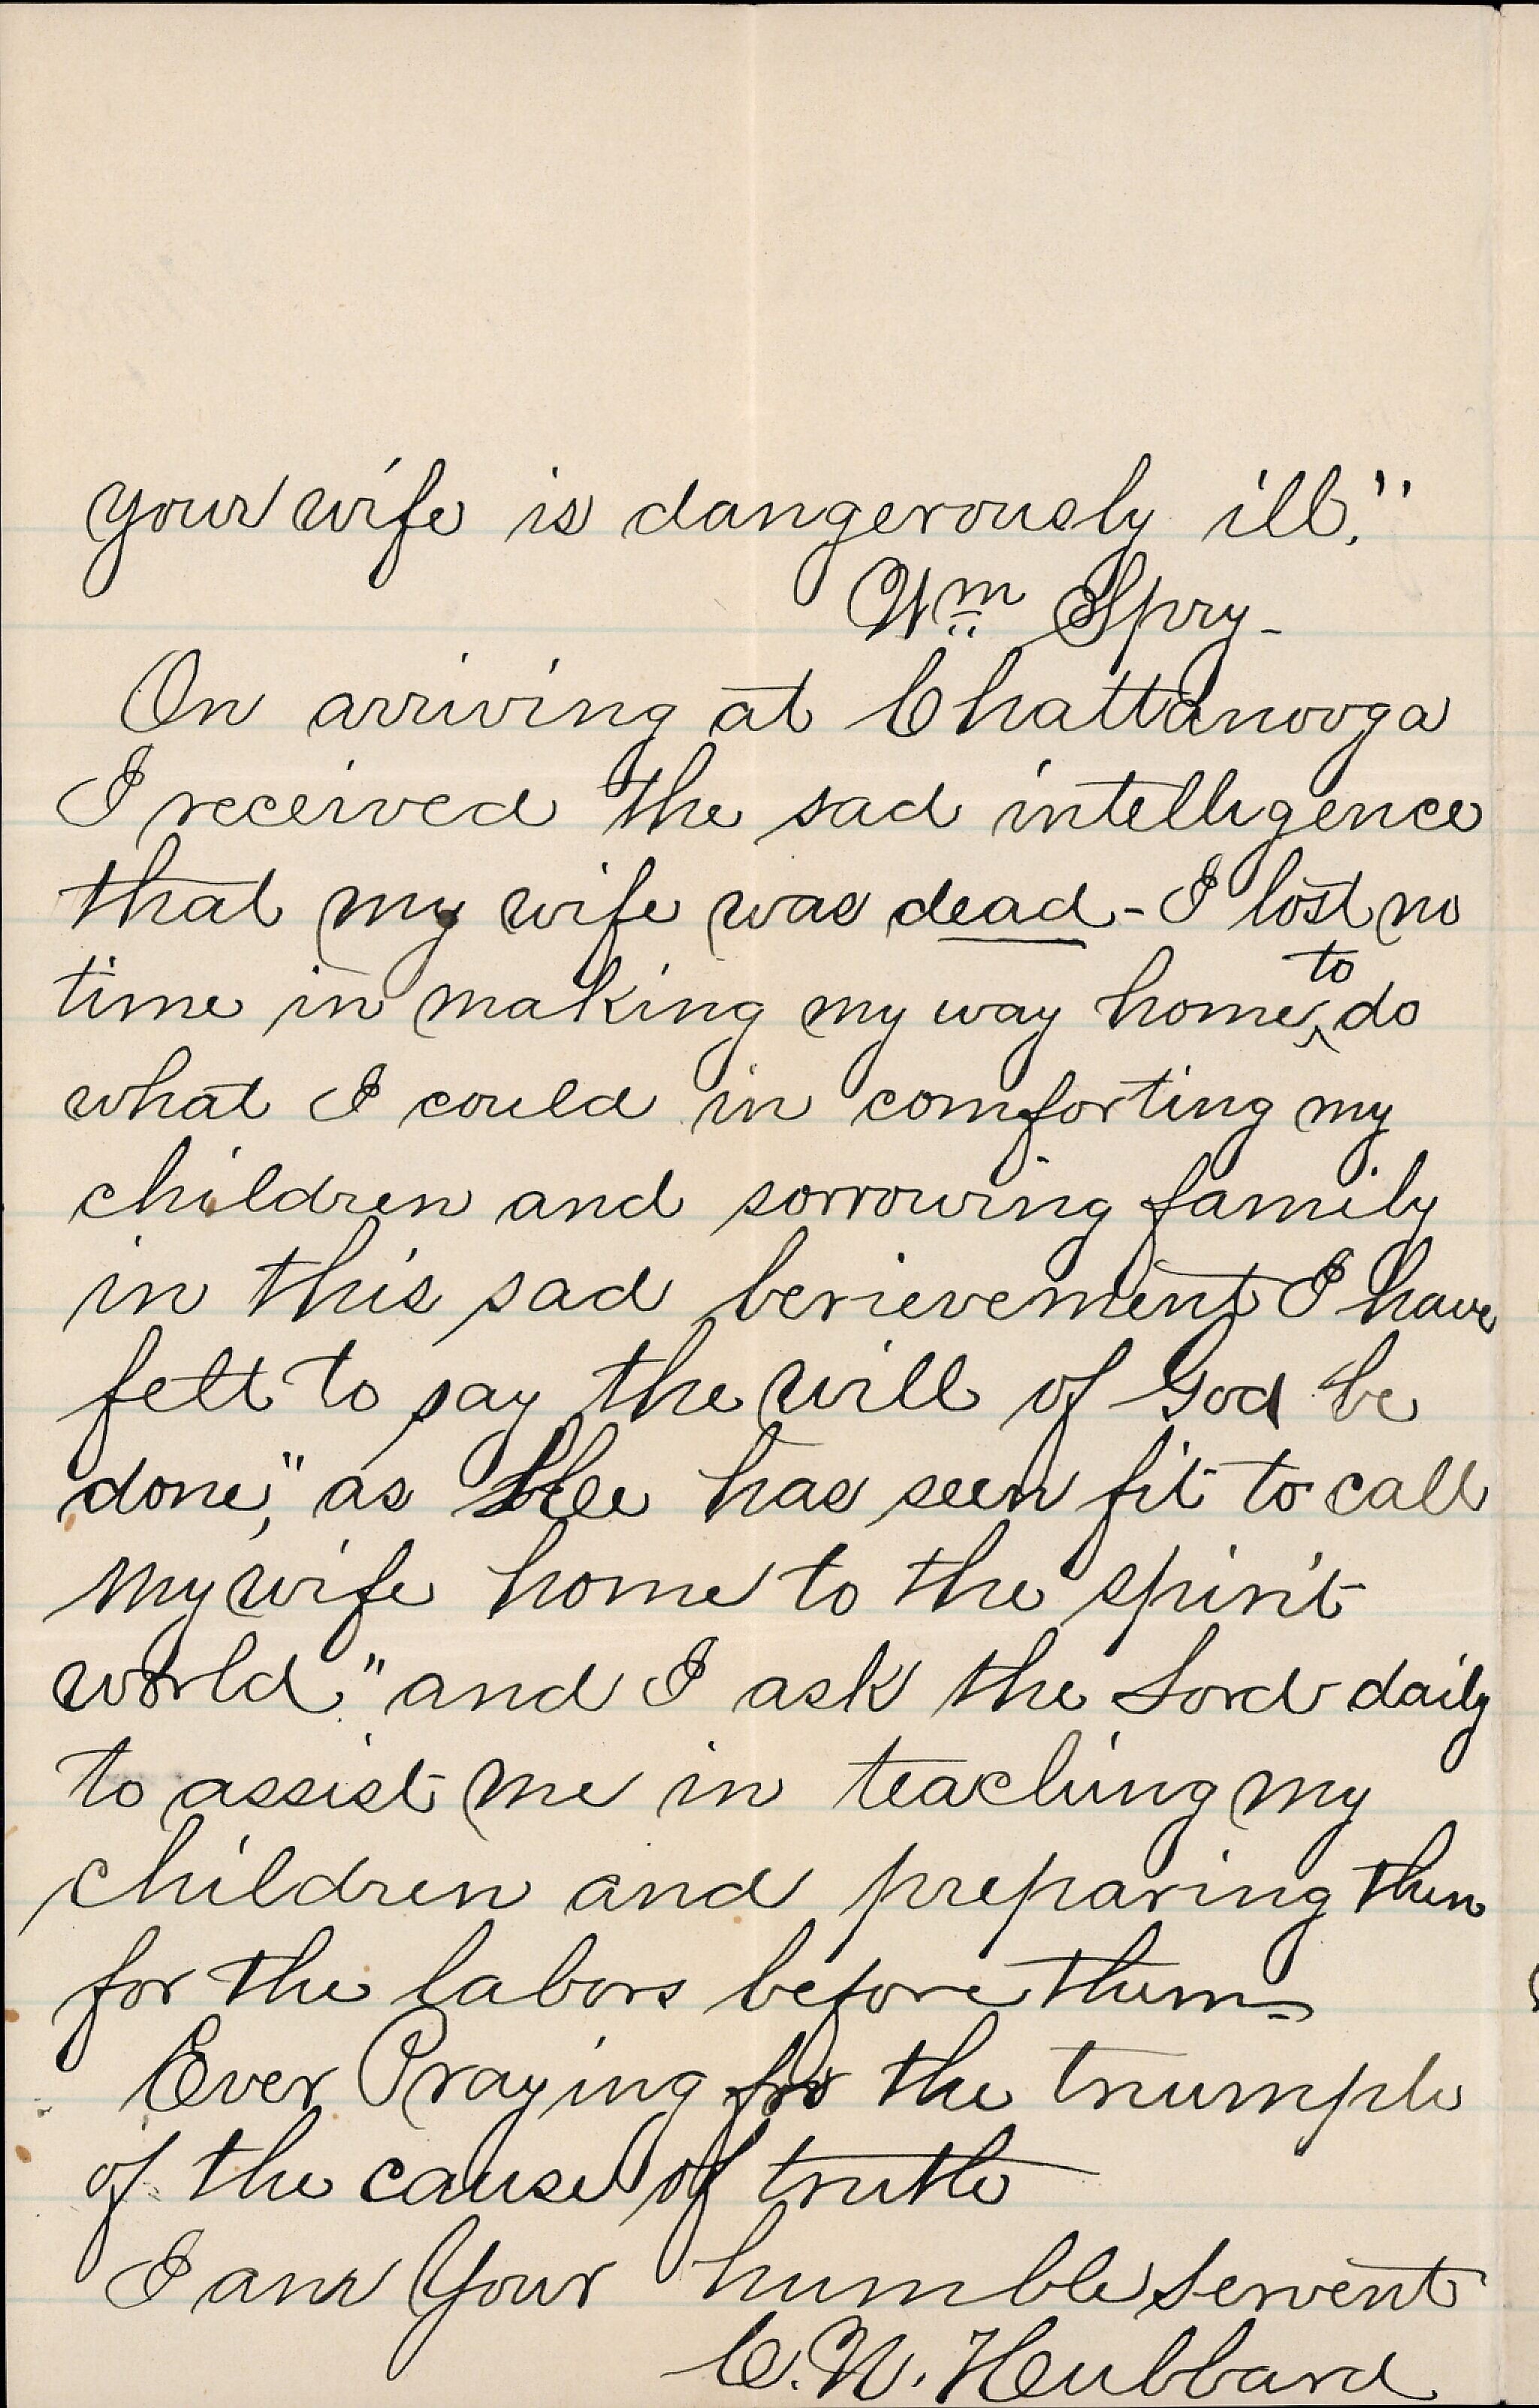 your wife is dangerously ill."
Wm Spry -
On arriving at Chattanooga
I received the sad intelligence
that my wife was dead - I lost no
time in making my way home to do
what I could in comforting my
children and sorrowing family
in this sad berievement I have
felt to say the will of God be
done," as He has seen fit to call
my wife home to the spirit
world." and I ask the Lord daily
to assist me in teaching my
children and preparing them
for the labors before them -
Ever Praying for the triumph
of the cause of truth
I am Your humble Servent
C. W. Hubbard